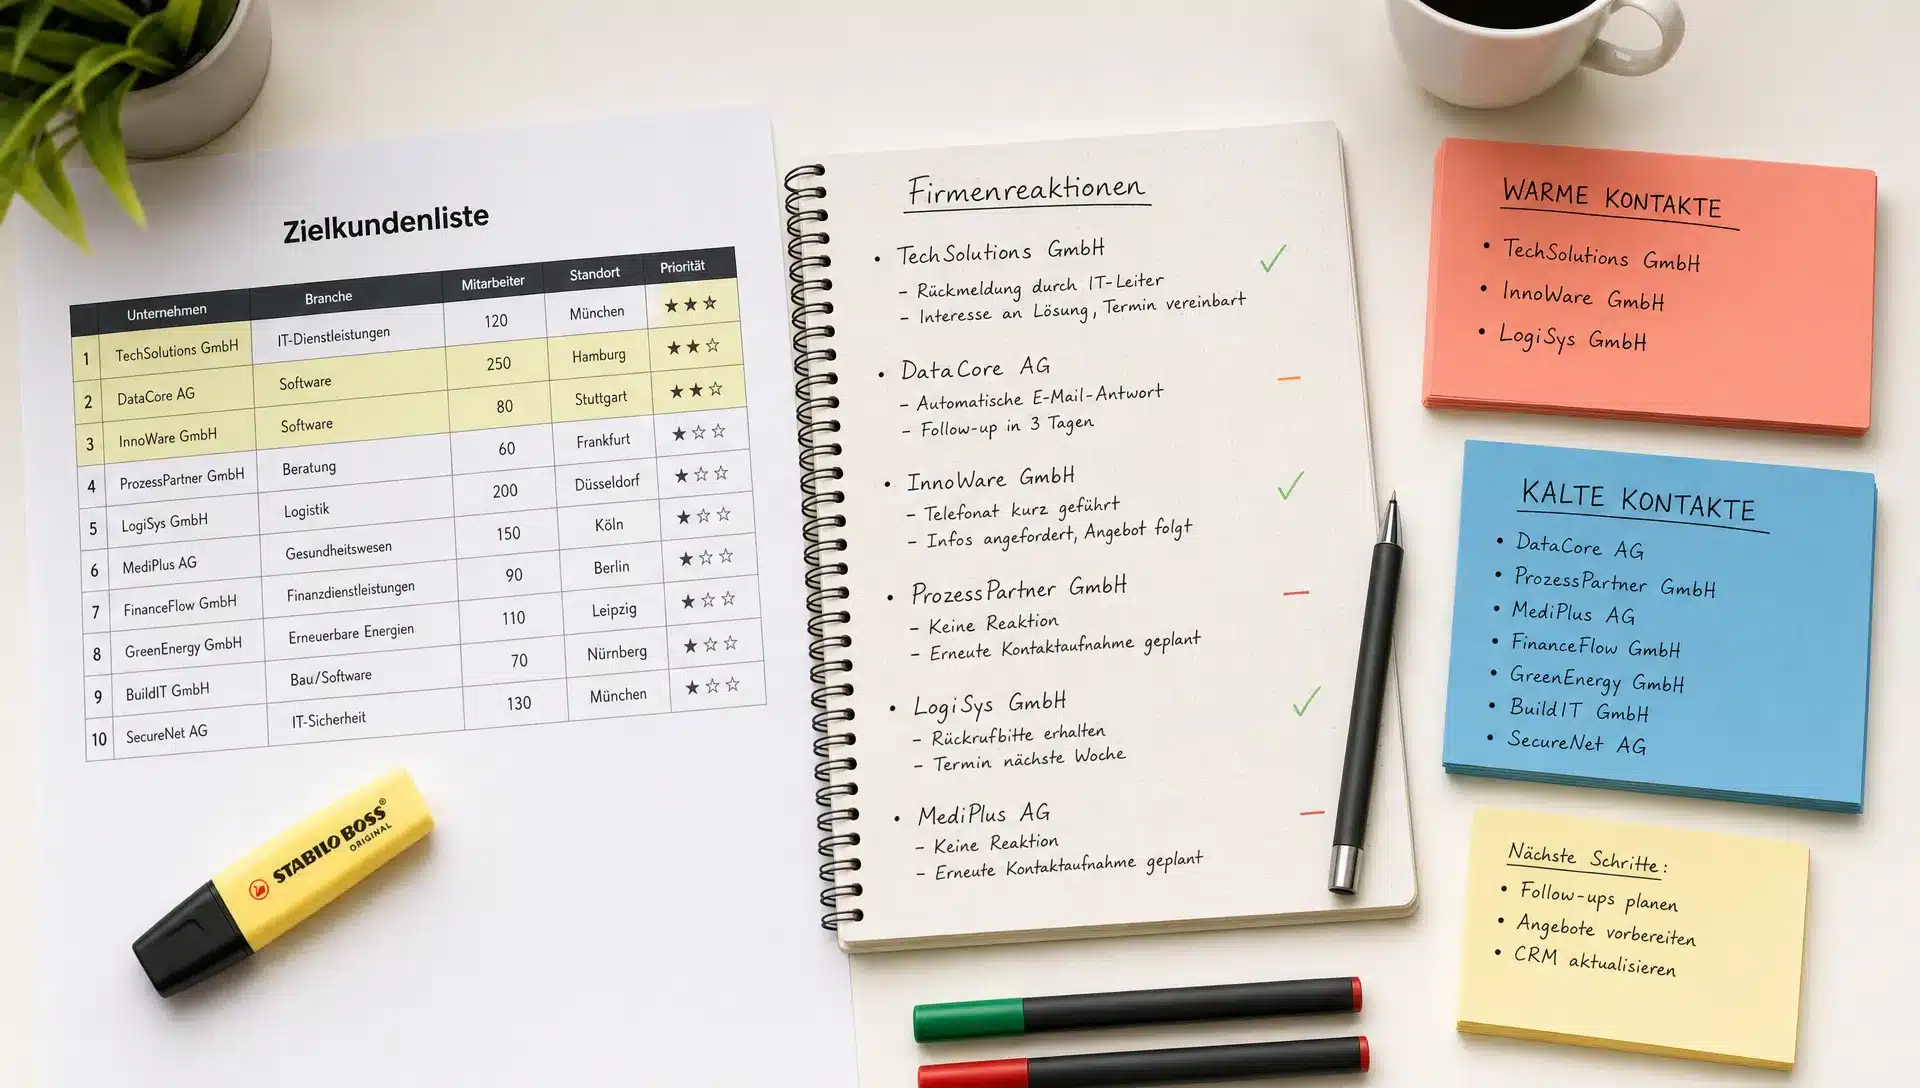 Zielkundenliste
Unternehmen Branche Mitarbeiter Standort Priorität
1 TechSolutions GmbH IT-Dienstleistungen 120 München ★★★
2 DataCore AG Software 250 Hamburg ★★☆
3 InnoWare GmbH Software 80 Stuttgart ★★☆
4 ProzessPartner GmbH Beratung 60 Frankfurt ★☆☆
5 LogiSys GmbH Logistik 200 Düsseldorf ★☆☆
6 MediPlus AG Gesundheitswesen 150 Köln ★☆☆
7 FinanceFlow GmbH Finanzdienstleistungen 90 Berlin ★☆☆
8 GreenEnergy GmbH Erneuerbare Energien 110 Leipzig ★☆☆
9 BuildIT GmbH Bau/Software 70 Nürnberg ★☆☆
10 SecureNet AG IT-Sicherheit 130 München ★☆☆
STABILO BOSS®
ORIGINAL
Firmenreaktionen
• TechSolutions GmbH ✓
– Rückmeldung durch IT-Leiter
– Interesse an Lösung, Termin vereinbart
• DataCore AG –
– Automatische E-Mail-Antwort
– Follow-up in 3 Tagen
• InnoWare GmbH ✓
– Telefonat kurz geführt
– Infos angefordert, Angebot folgt
• ProzessPartner GmbH –
– Keine Reaktion
– Erneute Kontaktaufnahme geplant
• LogiSys GmbH ✓
– Rückrufbitte erhalten
– Termin nächste Woche
• MediPlus AG –
– Keine Reaktion
– Erneute Kontaktaufnahme geplant
WARME KONTAKTE
• TechSolutions GmbH
• InnoWare GmbH
• LogiSys GmbH
KALTE KONTAKTE
• DataCore AG
• ProzessPartner GmbH
• MediPlus AG
• FinanceFlow GmbH
• GreenEnergy GmbH
• BuildIT GmbH
• SecureNet AG
Nächste Schritte:
• Follow-ups planen
• Angebote vorbereiten
• CRM aktualisieren